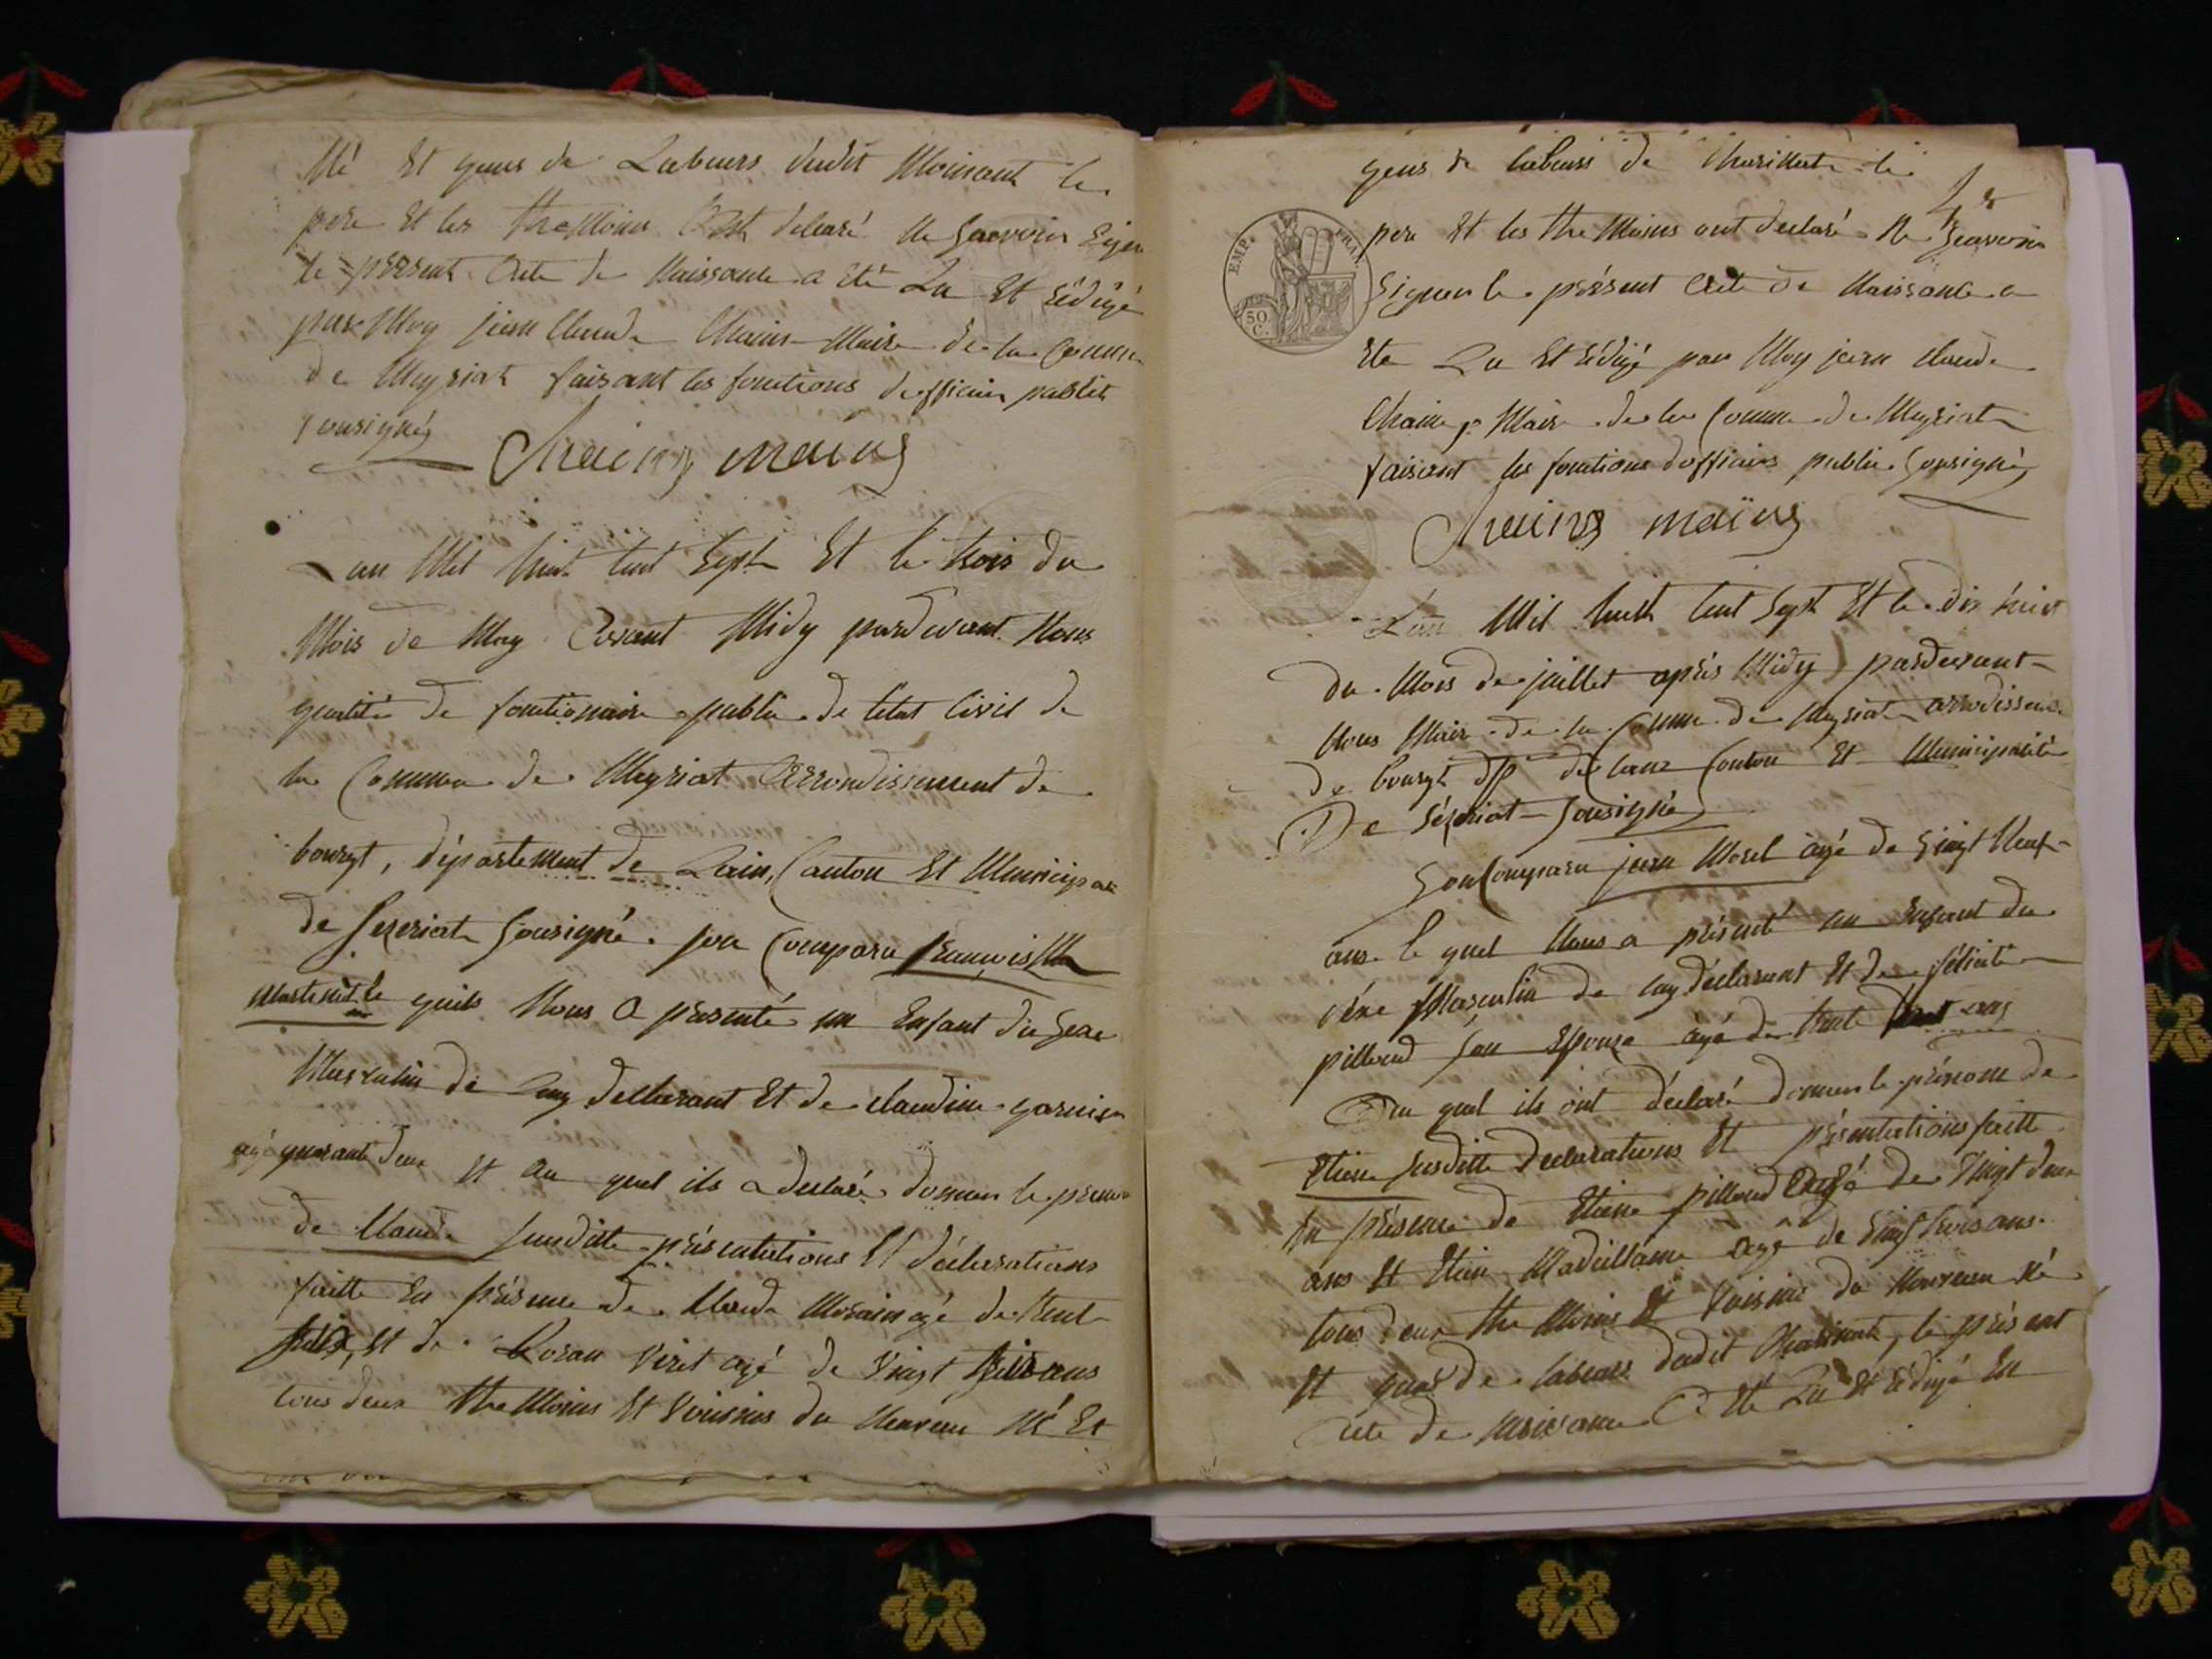 Né Et gens de Labeurs dudit Moinant le
pere Et les theMoins Ont déclaré Ne Scavoir Signer
le présent Acte de Naissance a Eté Lu Et Rédigé
par Moy jean Claude Chains Maire de la Comune
de Meyriat faisant les fonctions d'officier publit
sousigné
Chains maire
Lan Mil huit Cent Sept Et le trois du
Mois de May Avant Midy pardevant Nous
qualité de fonctionaire public de letat Civil de
la Commune de Meyriat Arrondissement de
bourgt, département de Lain, Canton Et Municipa
de Sezeriat Sousigné. sou Comparu francois
quils Nous A présenté un Enfant du Gene
Masculin de Luy declarant Et de claudine garnier
agé quarante deux Et Au quel ils a declaré donner le prenom
de Claude susditte présentations Et déclarations
faitte En présence de Claude Morain agé de trent
Et de Loran Viret agé de Vingt ans
tous deux theMoins Et Voisins du Nouveau Né Et
gens de labeurs de le
pere Et les theMoins ont declaré Ne Scavoir
EMP. FRAN.
50 C.
Signer le présent Acte de Naissance a
Ete Lu Et Rédigé par Moy jean claude
Chains Maire de la Comune de Meyriat
faisant les fonctions d'officier public Sousigné
Chains maire
L'an Mil huit Cent Sept Et le dix huit
du Mois de juillet après Midy pardevant
Nous Maire de la Comune de Meyriat arrodisseme
de bourgt dp de Canton Et Municipalité
De Sézeriat Sousigné
Sou Comparu jean Morel agé de Vingt Neuf
ans le quel Nous a présenté un Enfant du
Géne Masculin de luy déclarant Et de félicité
pilloud Son Epouse agé de trente ans
Au quel ils ont déclaré donner le prénom de
Etiene susditte Declarations Et présentations faitte
En présence de Etiene pilloud Agé de Vingt deux
ans Et Etiene agé de Vingt trois ans
tous deux theMoins Et Voisins du Nouveau Né
Et gens de labeurs dudit le présent
acte de Naissance A Eté Lu Et Rédigé En